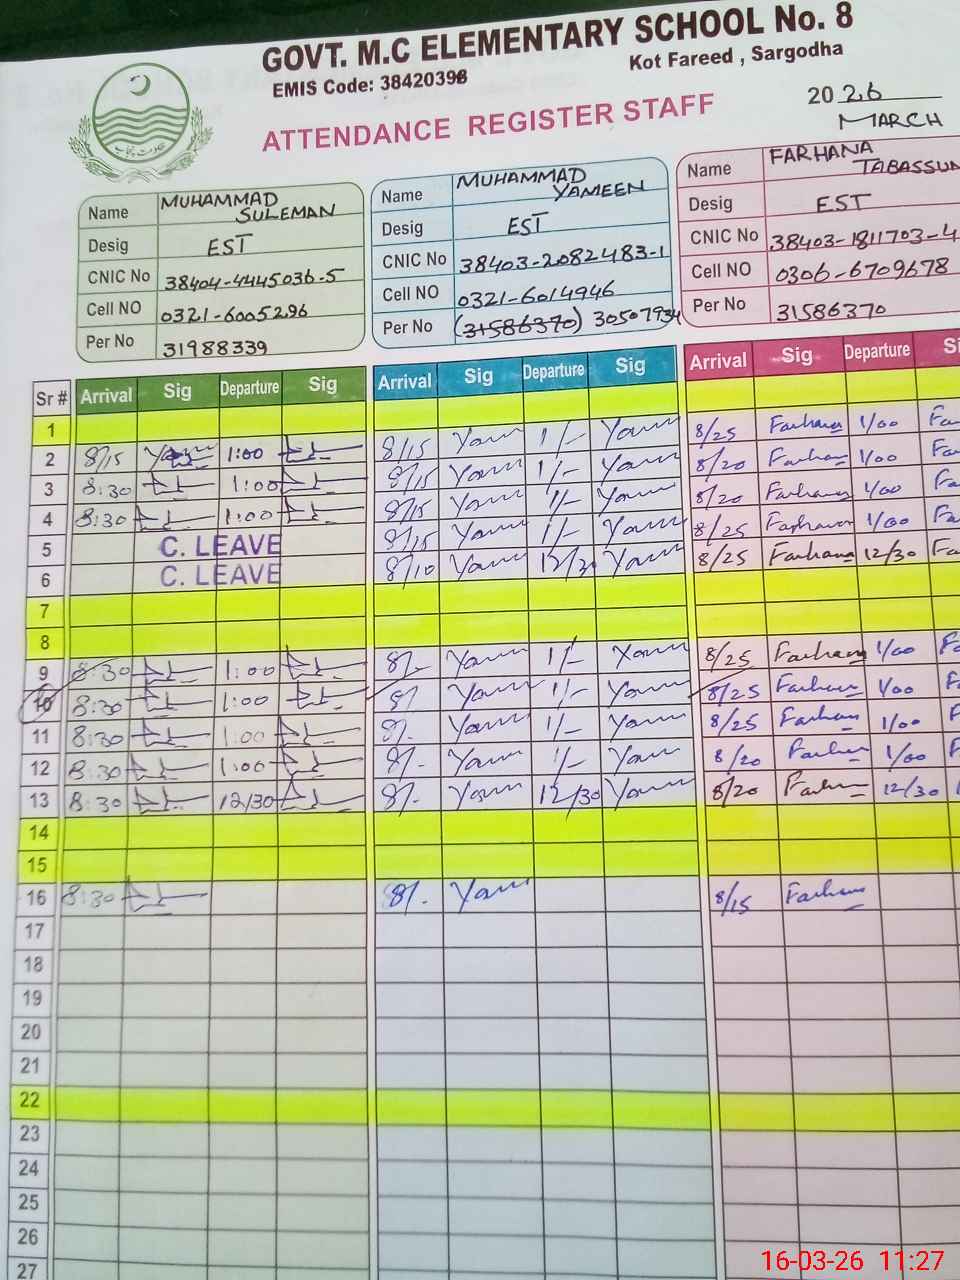 GOVT. M.C ELEMENTARY SCHOOL No. 8
EMIS Code: 38420398
Kot Fareed , Sargodha
ATTENDANCE REGISTER STAFF
2026
MARCH
حکومت پنجاب
Name MUHAMMAD SULEMAN
Desig EST
CNIC No 38404-4445036-5
Cell NO 0321-6005296
Per No 31988339
Name MUHAMMAD YAMEEN
Desig EST
CNIC No 38403-2082483-1
Cell NO 0321-6014946
Per No (31586370) 30507934
Name FARHANA TABASSUM
Desig EST
CNIC No 38403-1811703-4
Cell NO 0306-6709678
Per No 31586370
Sr # Arrival Sig Departure Sig Arrival Sig Departure Sig Arrival Sig Departure Si
1
2 8/15 1:00 8/15 Yam 1/- Yam 8/25 Farhana 1/00 Fa
3 8:30 1:00 8/15 Yam 1/- Yam 8/20 Farhana 1/00 Fa
4 8:30 1:00 8/15 Yam 1/- Yam 8/20 Farhana 1/00 Fa
5 C. LEAVE 8/15 Yam 1/- Yam 8/25 Farhana 1/00 Fa
6 C. LEAVE 8/10 Yam 12/30 Yam 8/25 Farhana 12/30 Fa
7
8
9 8:30 1:00 8/- Yam 1/- Yam 8/25 Farhana 1/00 Fa
10 8:30 1:00 8/ Yam 1/- Yam 8/25 Farhana 1/00 Fa
11 8:30 1:00 8/- Yam 1/- Yam 8/25 Farhana 1/00
12 8:30 1:00 8/- Yam 1/- Yam 8/20 Farhana 1/00
13 8:30 12/30 8/- Yam 12/30 Yam 8/20 Farhana 12/30
14
15
16 8:30 8/- Yam 8/15 Farhana
17
18
19
20
21
22
23
24
25
26
27
16-03-26 11:27